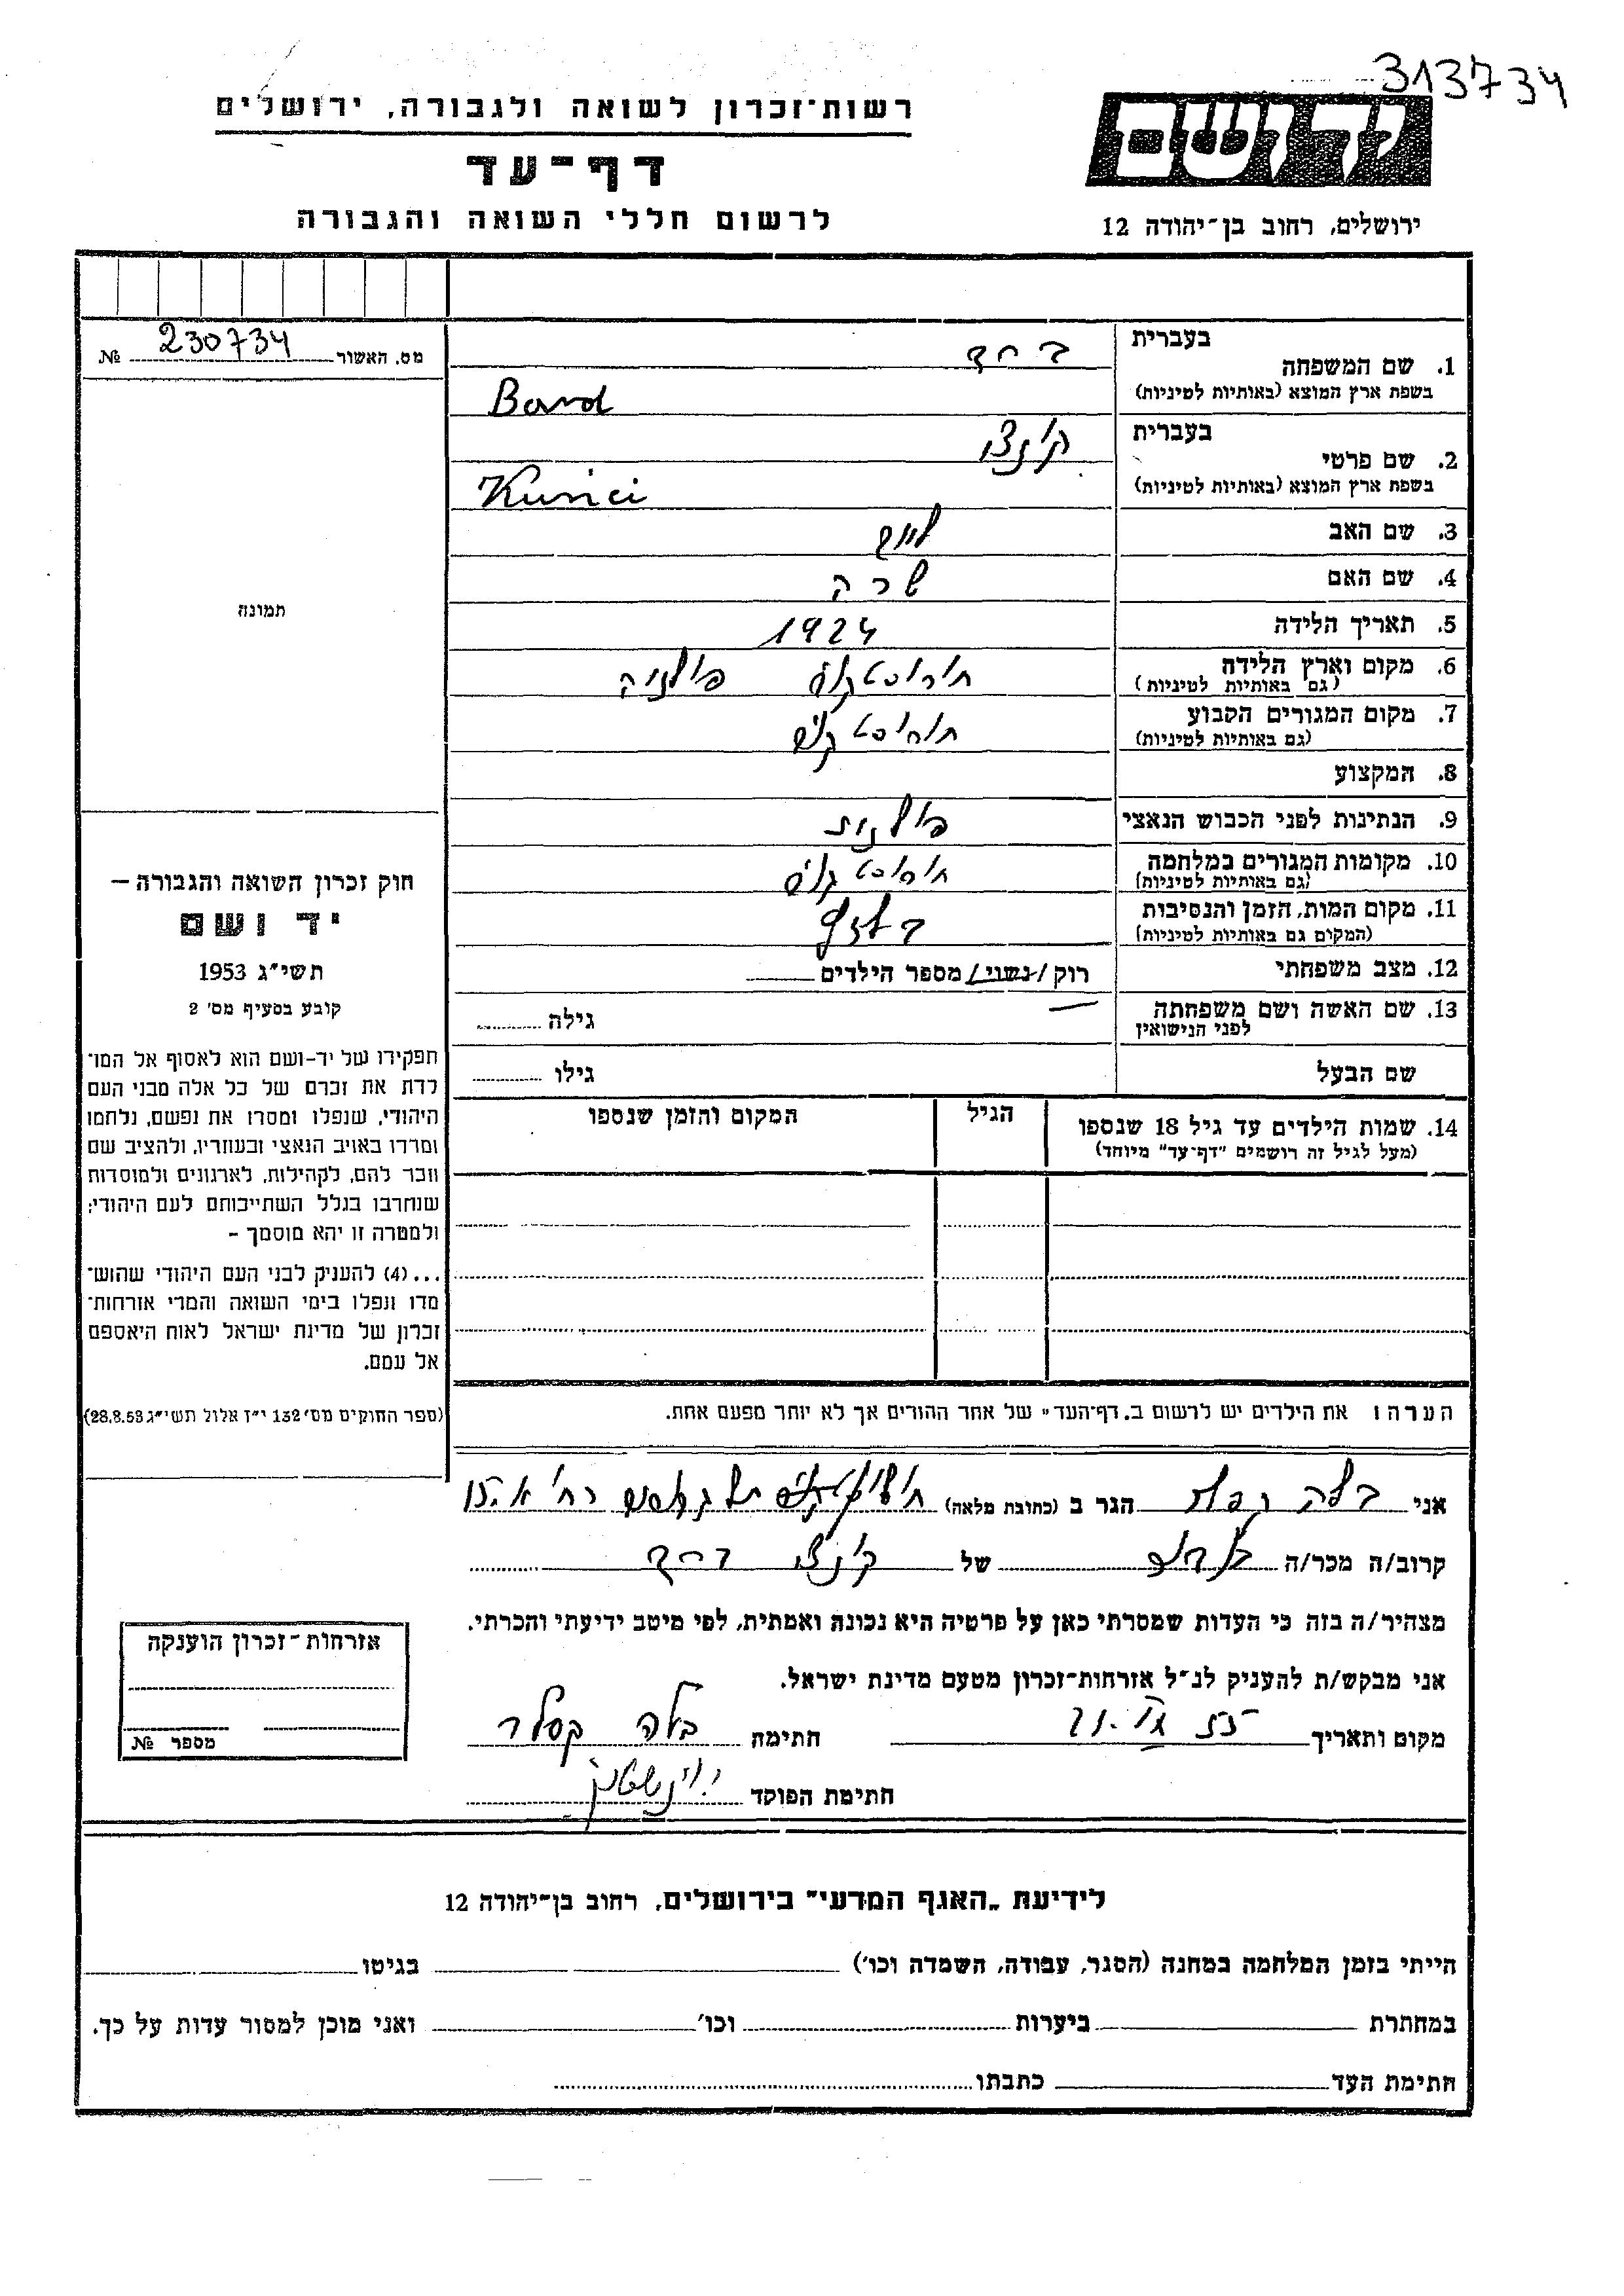 313734
רשות-זכרון לשואה ולגבורה, ירושלים
יד ושם
דף-עד
לרשום חללי השואה והגבורה
ירושלים, רחוב בן-יהודה 12
מס. האשור 230734 №
תמונה
חוק זכרון השואה והגבורה –
יד ושם
תשי"ג 1953
קובע בסעיף מס' 2
תפקידו של יד-ושם הוא לאסוף אל המו־
לדת את זכרם של כל אלה מבני העם
היהודי, שנפלו ומסרו את נפשם, נלחמו
ומרדו באויב הנאצי ובעוזריו, ולהציב שם
וזכר להם, לקהילות, לארגונים ולמוסדות
שנחרבו בגלל השתייכותם לעם היהודי;
ולמטרה זו יהא מוסמך –
...(4) להעניק לבני העם היהודי שהוש־
מדו ונפלו בימי השואה והמרי אזרחות־
זכרון של מדינת ישראל לאות היאספם
אל עמם.
(ספר החוקים מס' 132 י"ז אלול תשי"ג 28.8.53)
בעברית
1. שם המשפחה
בשפת ארץ המוצא (באותיות לטיניות) Band
בעברית
2. שם פרטי קינצי
בשפת ארץ המוצא (באותיות לטיניות) Kunci
3. שם האב
4. שם האם שרה
5. תאריך הלידה 1924
6. מקום וארץ הלידה פולניה
(גם באותיות לטיניות)
7. מקום המגורים הקבוע
(גם באותיות לטיניות)
8. המקצוע
9. הנתינות לפני הכבוש הנאצי פולנית
10. מקומות המגורים במלחמה
(גם באותיות לטיניות)
11. מקום המות, הזמן והנסיבות בלזץ
(המקום גם באותיות לטיניות)
12. מצב משפחתי רוק / נשוי / מספר הילדים
13. שם האשה ושם משפחתה
לפני הנישואין גילה
שם הבעל גילו
14. שמות הילדים עד גיל 18 שנספו הגיל המקום והזמן שנספו
(מעל לגיל זה רושמים "דף-עד" מיוחד)
הערה: את הילדים יש לרשום ב„דף-העד" של אחד ההורים אך לא יותר מפעם אחת.
אני בלה הגר ב (כתובת מלאה)
קרוב/ה מכר/ה של קינצי
מצהיר/ה בזה כי העדות שמסרתי כאן על פרטיה היא נכונה ואמתית, לפי מיטב ידיעתי והכרתי.
אני מבקש/ת להעניק לנ"ל אזרחות-זכרון מטעם מדינת ישראל.
מקום ותאריך חתימה בלה קסלר
חתימת הפוקד
אזרחות-זכרון הוענקה
מספר №
לידיעת „האגף המדעי" בירושלים, רחוב בן-יהודה 12
הייתי בזמן המלחמה במחנה (הסגר, עבודה, השמדה וכו') בגיטו
במחתרת ביערות וכו' ואני מוכן למסור עדות על כך.
חתימת העד כתבתו